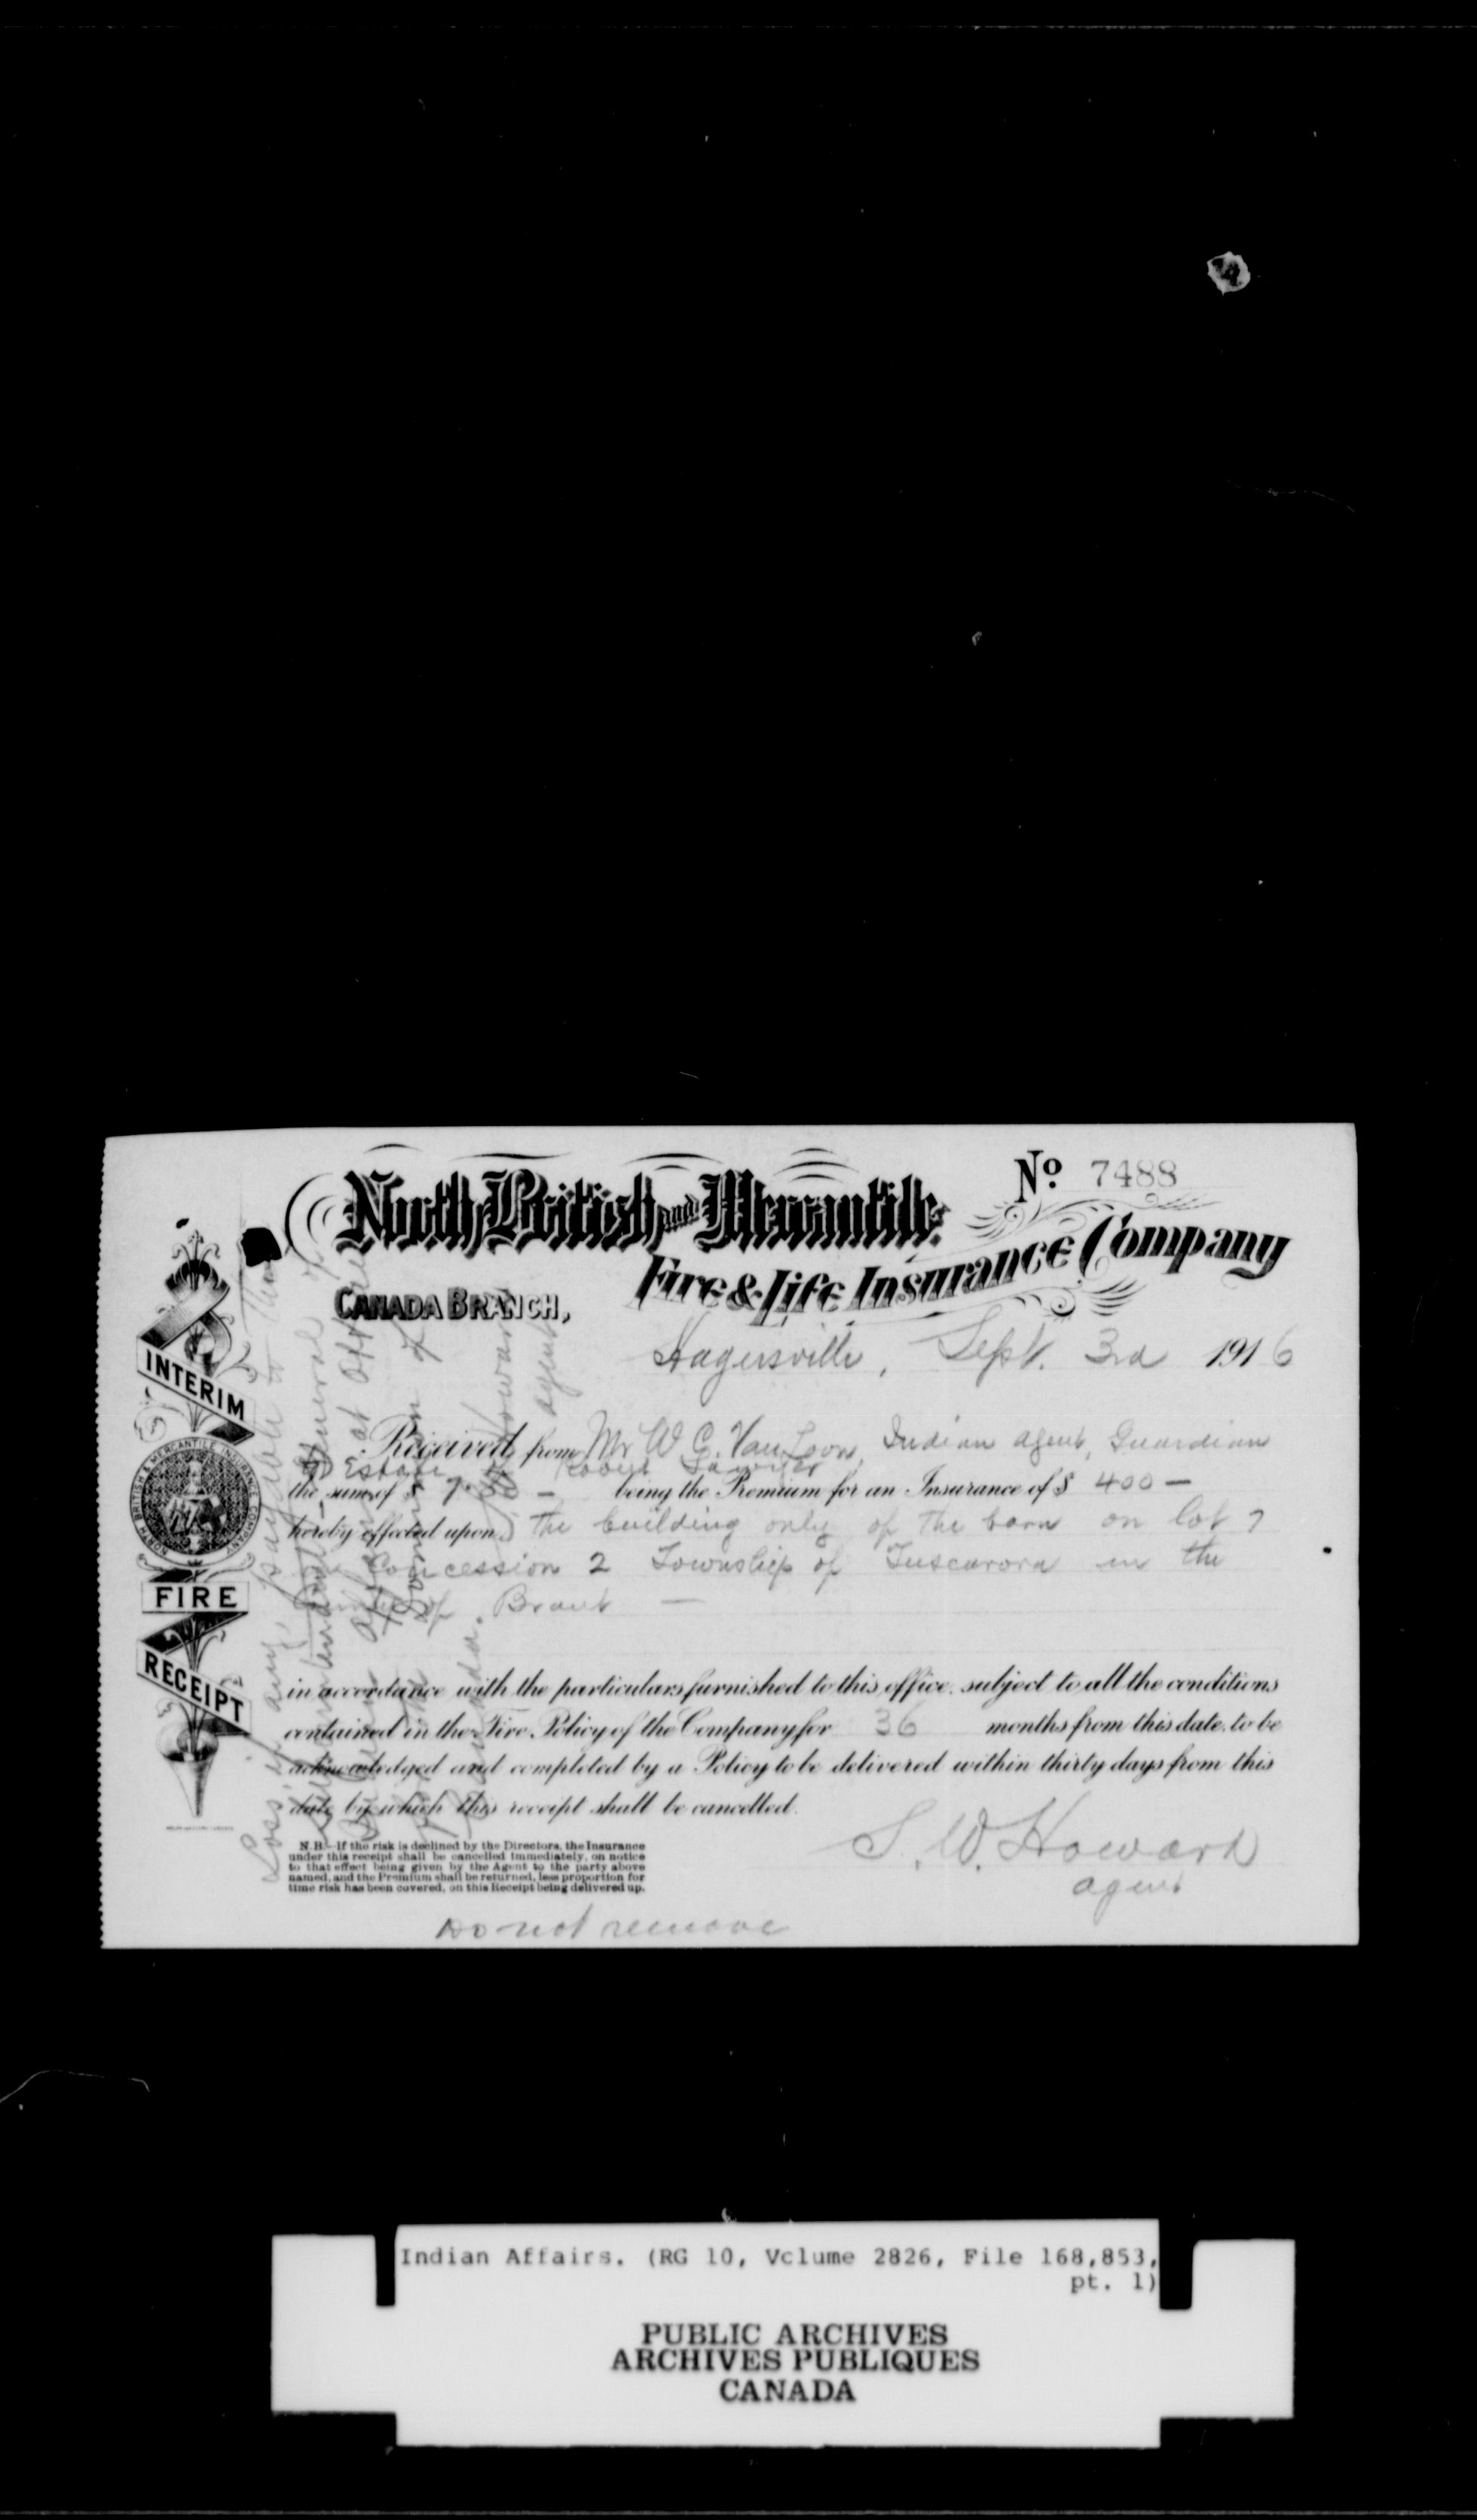 No. 7488
North British and Mercantile
Fire & Life Insurance Company
CANADA BRANCH,
Hagersville, Sept. 3rd 1916
INTERIM
FIRE
RECEIPT
NORTH BRITISH & MERCANTILE INSURANCE COMPANY
Received from Mr W. C. Van Loon, Indian agent, Guardian
Estate of Robert
the sum of $ 7. being the Premium for an Insurance of $ 400 —
hereby effected upon the building only of the barn on lot 7
Concession 2 Township of Tuscarora in the
of Brant —
in accordance with the particulars furnished to this office, subject to all the conditions
contained in the Fire Policy of the Company for 36 months from this date, to be
acknowledged and completed by a Policy to be delivered within thirty days from this
date by which this receipt shall be cancelled.
N.B.—If the risk is declined by the Directors, the Insurance
under this receipt shall be cancelled immediately, on notice
to that effect being given by the Agent to the party above
named, and the Premium shall be returned, less proportion for
time risk has been covered, on this Receipt being delivered up.
S. W. Howard
agent
Do not remove
Loss, if any, payable to the
General of
at Ottawa
Dominion of
Canada.
Howard
agent
Indian Affairs. (RG 10, Volume 2826, File 168,853,
pt. 1)
PUBLIC ARCHIVES
ARCHIVES PUBLIQUES
CANADA